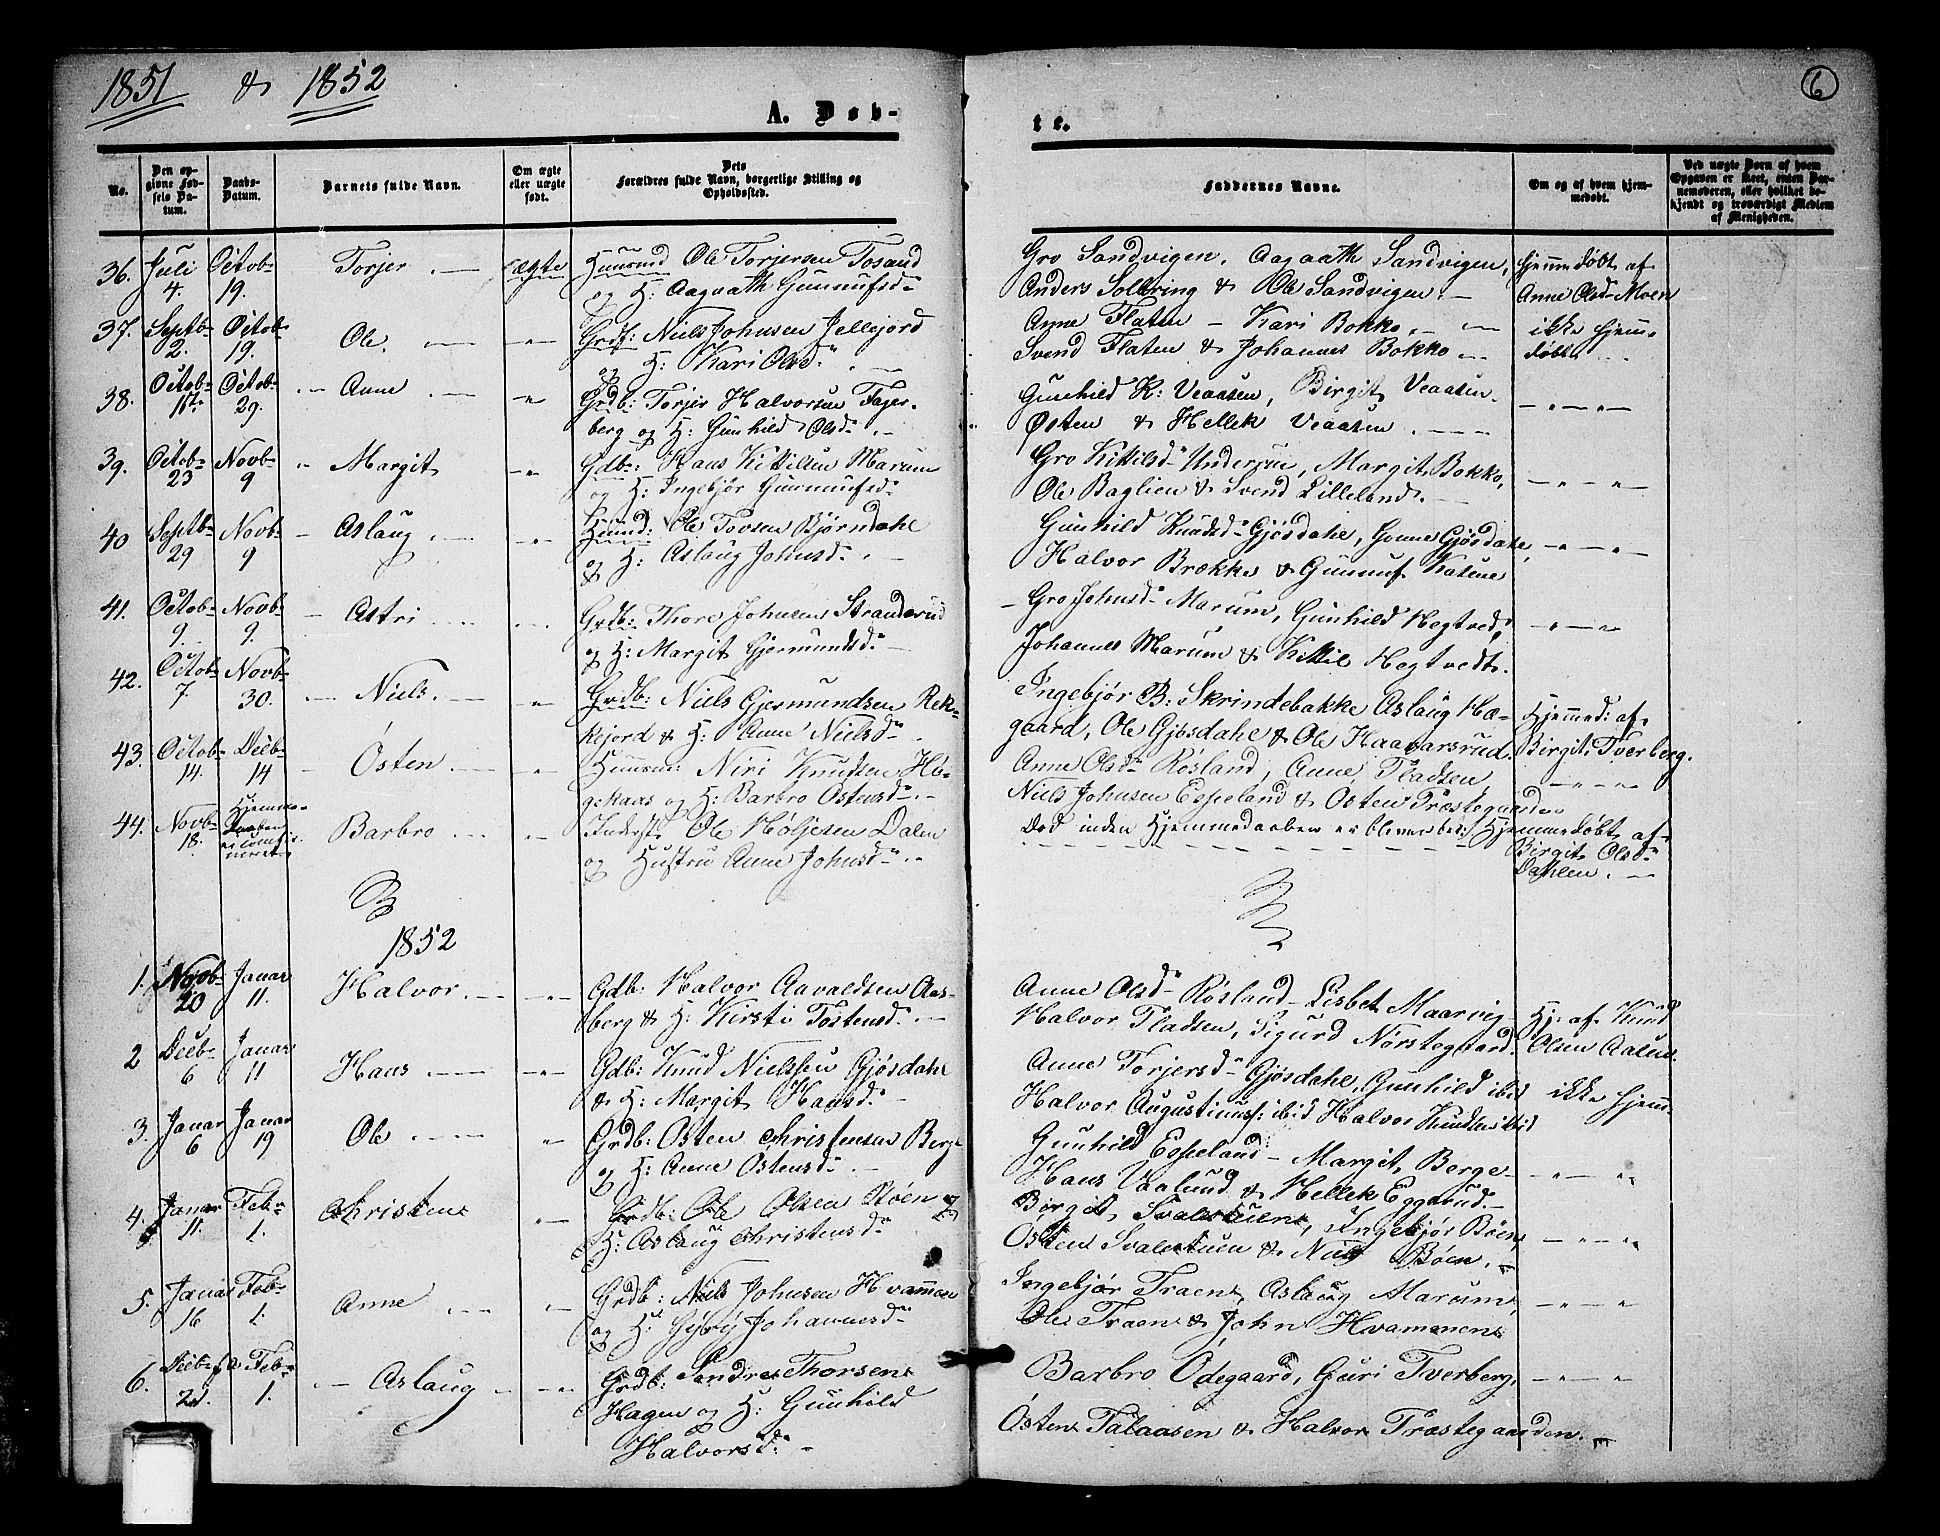 1851 & 1852
6
A. Døb-
te.
No.
Den opgivne Fødsels Datum.
Daabs-Datum.
Barnets fulde Navn.
Om ægte eller uægte født.
Dets Forældres fulde Navn, borgerlige Stilling og Opholdssted.
Faddernes Navne.
Om og af hvem hjemmedøbt.
Ved uægte Børn af hvem Opgaven er skeet, enten Barnemoderen, eller hvilket bekjendt og troværdigt Medlem af Menigheden.
36. Juli 4. Octob. 19. Torjer ægte Huusmd Ole Torjersen Tosand
og H: Aagaath Gunnufsd.
Gro Sandvigen, Aagaath Sandvigen,
Anders Solbring & Ole Sandvigen.
hjemmedøbt af
Anne Olsd. Moen
37. Septb. 2. Octob. 19. Ole Grdb: Niels Johnsen Jellejord
og H: Kari Olsd.
Anne Flaten - Kari Bokko
Svend Flaten & Johannes Bokko
ikke hjem-
døbt
38. Octob. Octob. 29. Anne Grdb: Torjer Halvorsen Fager-
berg og H: Gunhild Olsd.
Gunhild K: Veaasen, Birgit Veaasen
Østen & Hellek Veaasen
39. Octob. 23 Novb. 9 Margit Gdb: Hans Kittilsen Marum
og H: Ingebjør Gunnufsd.
Gro Kittilsd. Underrue, Margit Bokko,
Ole Baglien & Svend Lilleland
40 Septb. 29 Novb. 9 Aslaug Huusmd: Ole Tovsen Bjørndahl
& H: Aslaug Johnsd.
Gunhild Knudsd. Gjøsdahl, Gunne Gjøsdahl,
Halvor Brække & Gunnuf
41. Octob. 9. Novb. 9. Astri Grdb: Thore Johnsen Stranderud
og H: Margit Gjermundsd.
Gro Johnsd. Marum, Gunhild Hegtved,
Johannes Marum & Kittil Hegtvedt.
42. Octob. 7. Novb. 30. Niels Grdb: Niels Gjermundsen Rek-
kejord & H: Anne Nielsd.
Ingebjør B: Skrindebakke Aslaug Hæ-
gaard, Ole Gjøsdahl & Ole Haavarsrud.
Hjemmed: af
Birgit Tverberg.
43. Octob. 14. Decb. 14 Østen Huusm: Niri Knudsen Hø-
gekaas og H: Barbro Østensd.
Anne Olsd. Røsland, Anne Fladsen,
Niels Johnsen Espeland & Østen Præstegaarden
44. Novb. 18. Hjemme-
Daaben
Barbro Inderst Ole Høljesen Dalen
og Hustru Anne Johnsd.
Død inden Hjemmedaaben er bleven
Hjemmedøbt af
Birgit Olsd.
Dahlen.
1852
1. Novb. 20 Januar 11. Halvor Gdb: Halvor Aavaldsen Aas-
berg & H: Kirsti Tostensd.
Anne Olsd. Røsland - Lisbet Maarvig
Halvor Fladsen, Sigurd Nørstegaard.
Hj: af Knud
Olsen Aalund.
2 Decb. 6 Januar 11 Hans Gdb: Knud Nielssen Gjøsdahl
& H: Margit Hansd.
Anne Torjersd. Gjøsdahl, Gunhild ibid
Halvor Augustinuss: ibid Halvor Knudsen ibid
ikke hjem.
3. Januar 6 Januar 19 Ole Grdb: Østen Christensen Berge
og H: Anne Østensd.
Gunhild Espeland - Margit Berge
Hans Vaalund & Hellek Eggerud
4. Januar 11. Feb. 1. Christen Grdb: Ole Olsen Bøen &
H: Aslaug Christensd.
Birgit Svalestuen, Ingebjør Bøen,
Østen Svalestuen & Niels Bøen.
5. Januar 16 Feb. 1. Anne Grdb: Niels Johnsen Hvammen
og H: Gyri Johannesd.
Ingebjør Traen, Aslaug Marum,
Ole Traen & John Hvammen
6. Decb. 21. Feb. 1. Aslaug Grdb: Sondre Thorsen
Hagen og H: Gunhild
Halvorsd.
Barbro Ødegaard, Guri Tverberg,
Østen Talaasen & Halvor Præstegaarden.